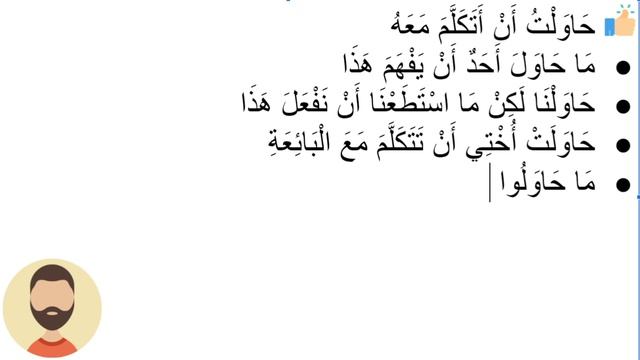 حَاوَلْتُ أَنْ أَتَكَلَّمَ مَعَهُ
مَا حَاوَلَ أَحَدٌ أَنْ يَفْهَمَ هَذَا
حَاوَلْنَا لَكِنْ مَا اسْتَطَعْنَا أَنْ نَفْعَلَ هَذَا
حَاوَلَتْ أُخْتِي أَنْ تَتَكَلَّمَ مَعَ الْبَائِعَةِ
مَا حَاوَلُوا